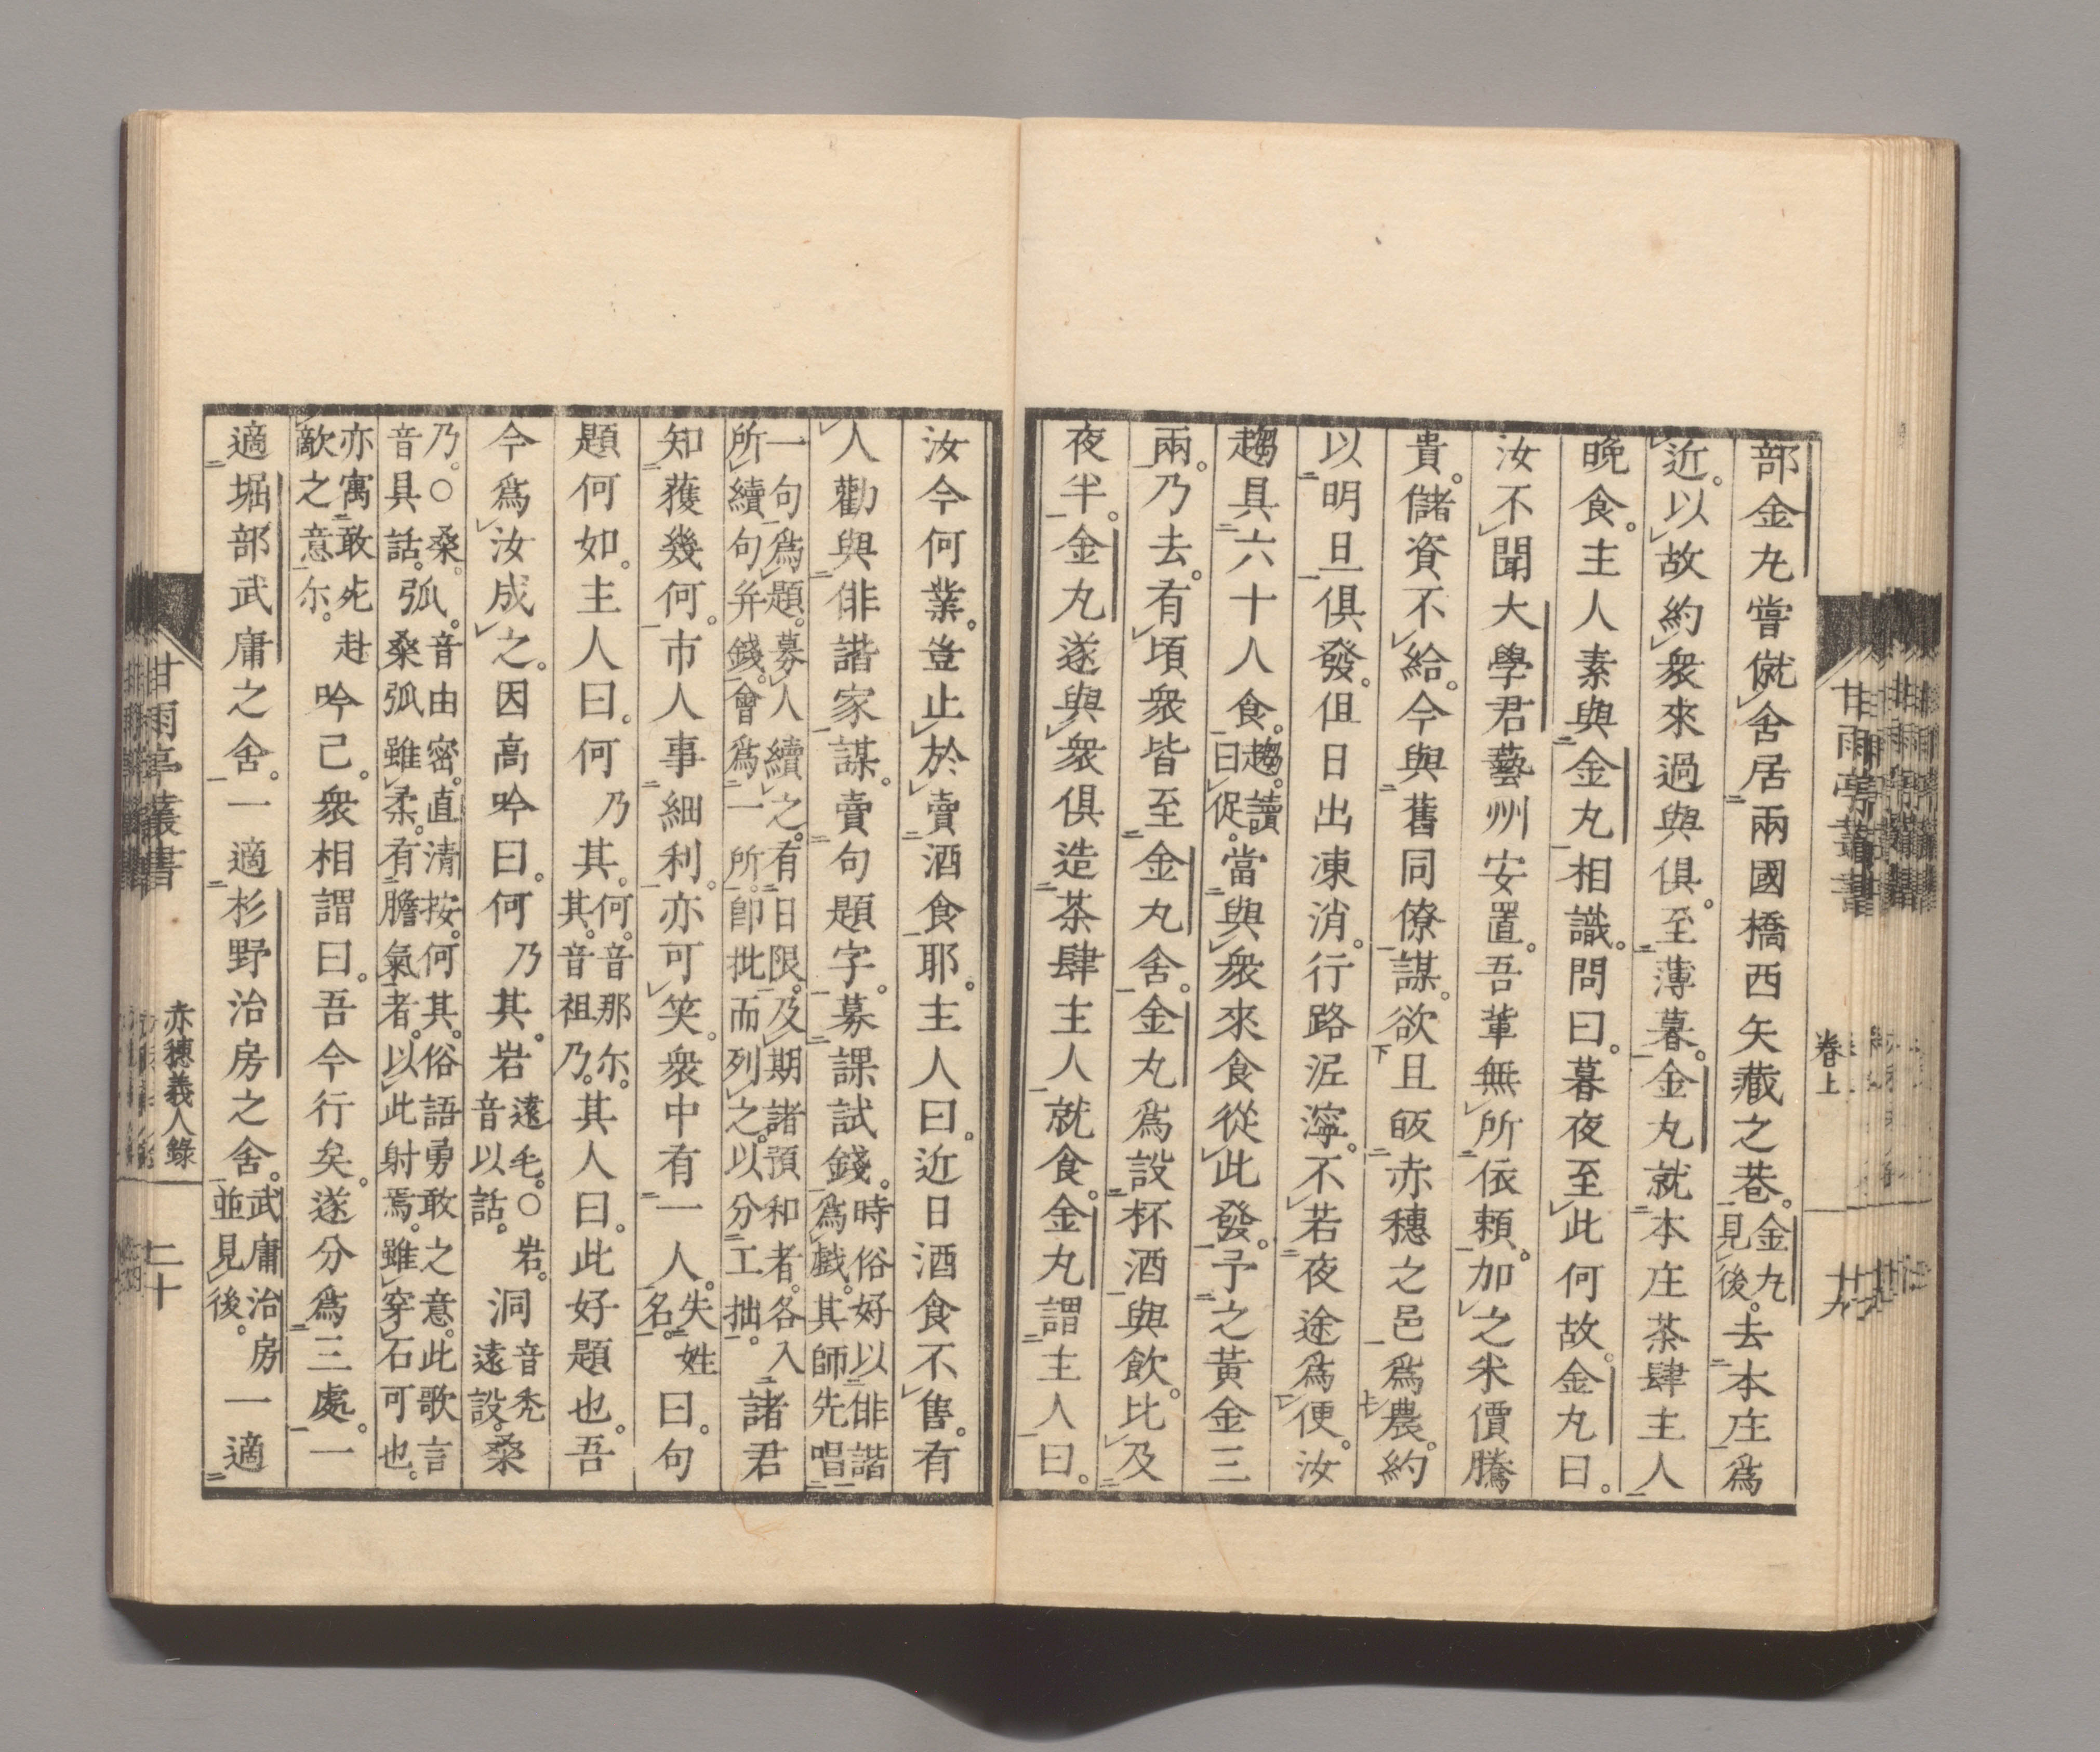 部金丸嘗僦舍居兩國橋西矢藏之巷。金丸見後。去本庄爲
近。以故約衆來過與俱。至薄暮。金丸就本庄茶肆主人
晚食。主人素與金丸相識。問曰。暮夜至此何故。金丸曰。
汝不聞大學君藝州安置。吾輩無所依賴。加之米價騰
貴。儲資不給。今與舊同僚謀。欲且皈赤穗之邑爲農。約
以明旦俱發。但日出凍消。行路泥濘。不若夜途爲便。汝
趨具六十人食。趨。讀曰促。當與衆來食從此發。予之黃金三
兩。乃去。有頃衆皆至金丸舍。金丸爲設杯酒與飲。比及
夜半。金丸遂與衆俱造茶肆主人就食。金丸謂主人曰。
汝今何業。豈止於賣酒食耶。主人曰。近日酒食不售。有
人勸與俳諧家謀。賣句題字。募課試錢。時俗好以俳諧爲戲。其師先唱
一句爲題。募人續之。有日限。及期諸預和者。各入所續句幷錢。會爲一所。卽批而列之。以分工拙。諸君
知獲幾何。市人事細利。亦可笑。衆中有一人。失姓名。曰。句
題何如。主人曰。何乃其。何。音那尓。其。音祖乃。其人曰。此好題也。吾
今爲汝成之。因高吟曰。何乃其。岩遠毛。○岩。音以話。洞音禿遠設。桑
乃。○桑。音具話。弧。音由密。直清按。何其。俗語勇敢之意。此歌言桑弧雖柔。有膽氣者。以此射焉。雖穿石可也。
亦寓敢死赴敵之意尓。吟已。衆相謂曰。吾今行矣。遂分爲三處。一
適堀部武庸之舍。一適杉野治房之舍。武庸治房並見後。一適
甘雨亭叢書
卷上
廿九
甘雨亭叢書
赤穗義人錄
二十